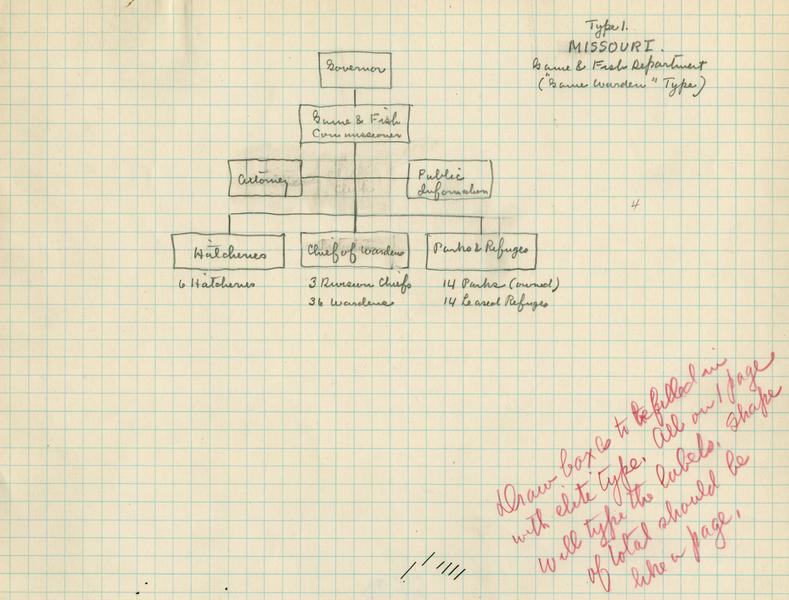 Type 1.
MISSOURI.
Game & Fish Department
("Game Warden" Type)
Governor
Game & Fish
Commissioner
Attorney
Public
Information
4
Hatcheries
Chief of Wardens
Parks & Refuges
6 Hatcheries
3 Division Chiefs
14 Parks (owned)
36 Wardens
14 Leased Refuges
Draw boxes to be filled in
with elite type. All on 1 page
Will type the labels. Shape
of total should be
like a page.